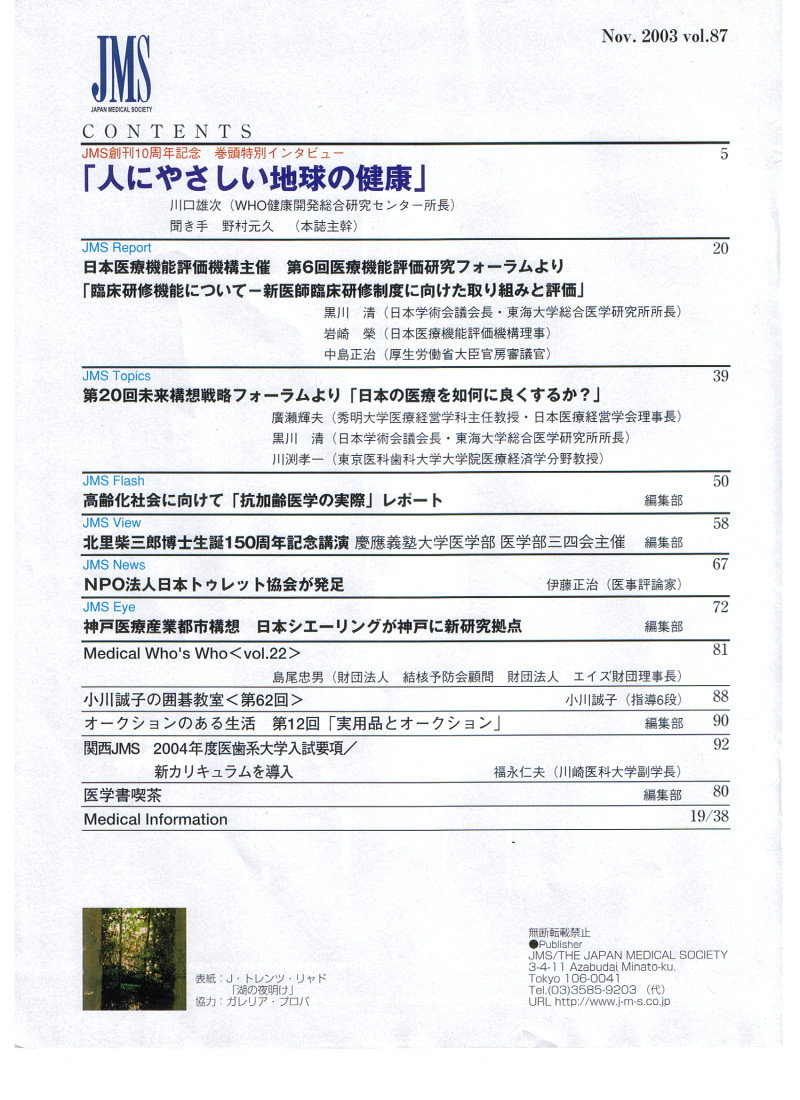 Nov. 2003 vol.87
JMS
JAPAN MEDICAL SOCIETY
CONTENTS
JMS創刊10周年記念　巻頭特別インタビュー 5
「人にやさしい地球の健康」
川口雄次（WHO健康開発総合研究センター所長）
聞き手　野村元久　（本誌主幹）
JMS Report 20
日本医療機能評価機構主催　第6回医療機能評価研究フォーラムより
「臨床研修機能について－新医師臨床研修制度に向けた取り組みと評価」
黒川　清（日本学術会議会長・東海大学総合医学研究所所長）
岩崎　榮（日本医療機能評価機構理事）
中島正治（厚生労働省大臣官房審議官）
JMS Topics 39
第20回未来構想戦略フォーラムより「日本の医療を如何に良くするか？」
廣瀬輝夫（秀明大学医療経営学科主任教授・日本医療経営学会理事長）
黒川　清（日本学術会議会長・東海大学総合医学研究所所長）
川渕孝一（東京医科歯科大学大学院医療経済学分野教授）
JMS Flash 50
高齢化社会に向けて「抗加齢医学の実際」レポート 編集部
JMS View 58
北里柴三郎博士生誕150周年記念講演 慶應義塾大学医学部 医学部三四会主催 編集部
JMS News 67
NPO法人日本トゥレット協会が発足 伊藤正治（医事評論家）
JMS Eye 72
神戸医療産業都市構想　日本シエーリングが神戸に新研究拠点 編集部
Medical Who's Who＜vol.22＞ 81
島尾忠男（財団法人　結核予防会顧問　財団法人　エイズ財団理事長）
小川誠子の囲碁教室＜第62回＞ 小川誠子（指導6段） 88
オークションのある生活　第12回「実用品とオークション」 編集部 90
関西JMS　2004年度医歯系大学入試要項／ 92
新カリキュラムを導入 福永仁夫（川崎医科大学副学長）
医学書喫茶 編集部 80
Medical Information 19/38
表紙：J・トレンツ・リャド
「湖の夜明け」
協力：ガレリア・プロバ
無断転載禁止
●Publisher
JMS/THE JAPAN MEDICAL SOCIETY
3-4-11 Azabudai Minato-ku,
Tokyo 106-0041
Tel.(03)3585-9203 （代）
URL http://www.j-m-s.co.jp